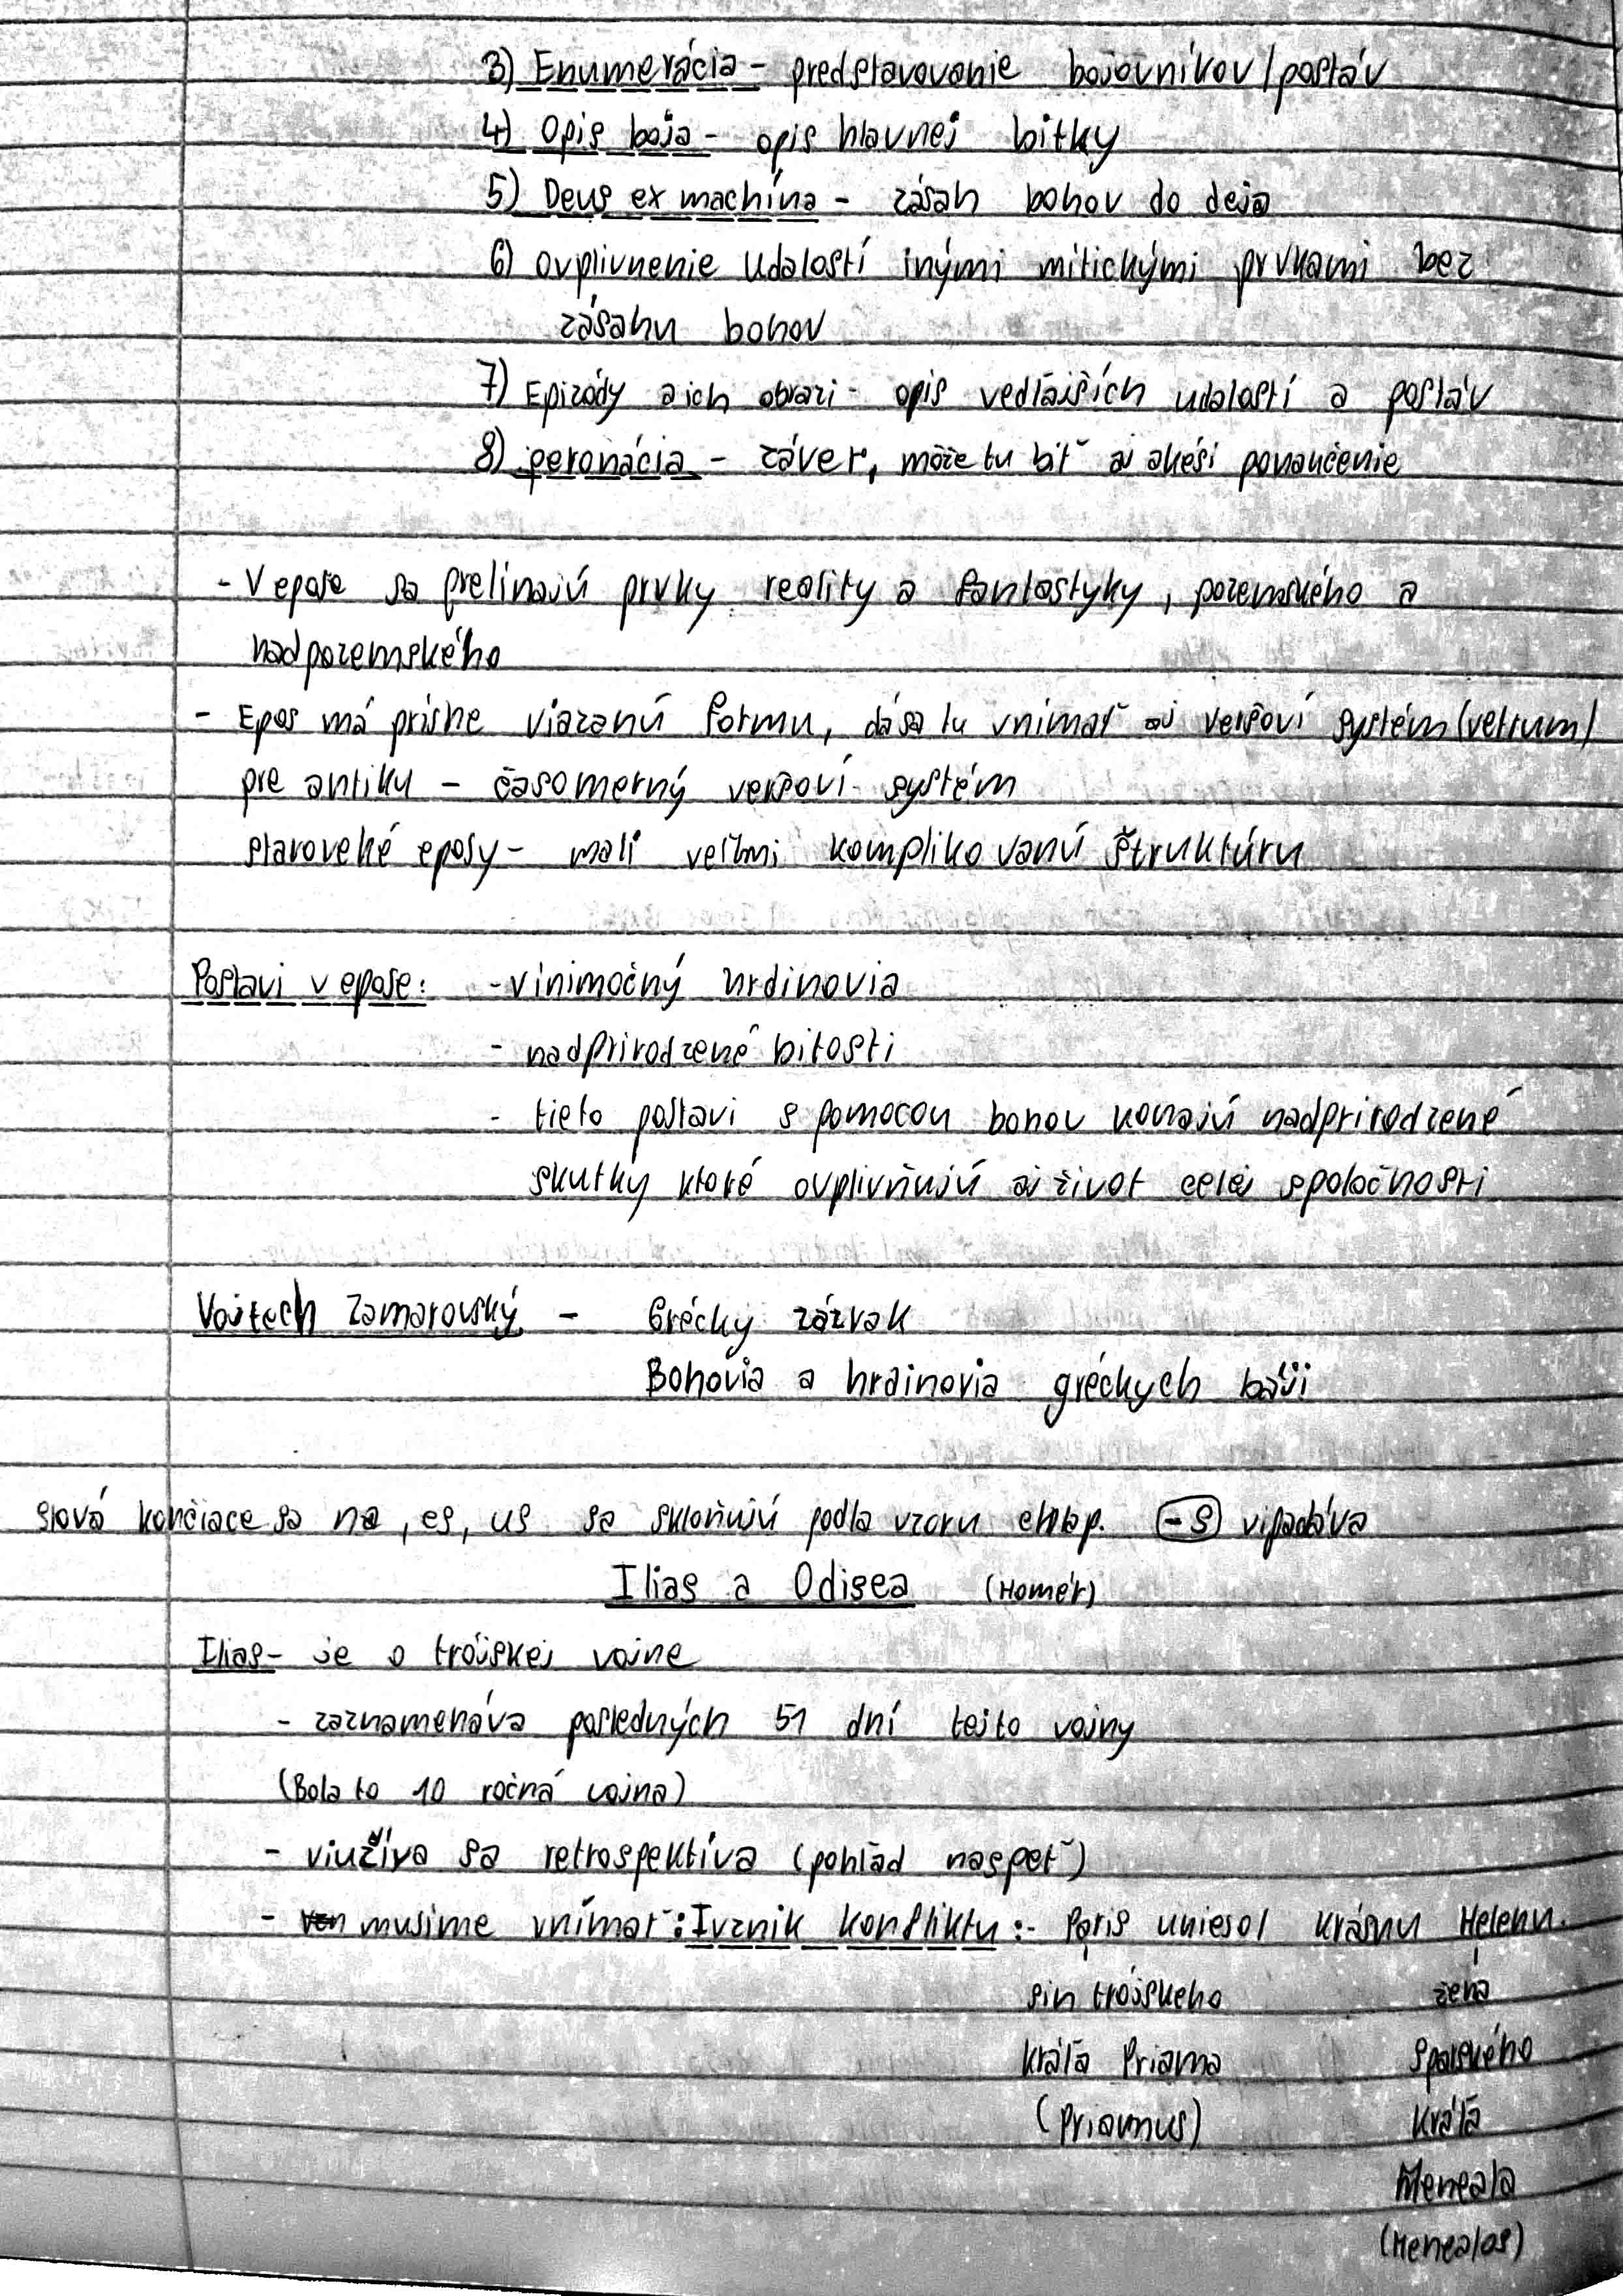 3) Enumerácia - predstavovanie bojovníkov/postáv
4) Opis boja - opis hlavnej bitky
5) Deus ex machína - zásah bohov do deja
6) ovplivnenie udalostí inými mitickými prvkami bez
zásahu bohov
7) Epizódy a ich obrazi - opis vedľajších udalostí a postáv
8) peronácia - záver, može tu biť aj akési ponaučenie
- V epose sa prelínajú prvky reality a fantastyky, pozemského a
nadpozemského
- Epos má prísne viazanú formu, dá sa tu vnímať aj veršoví systém (vetrum)
pre antiku - časomerný veršoví systém
staroveké eposy - mali veľmi komplikovanú štruktúru
Postavi v epose: - vinimočný hrdinovia
- nadprirodzené bitosti
- tieto postavi s pomocou bohov konajú nadprirodzené
skutky ktoré ovplivňujú aj život celej spoločnosti
Vojtech Zamarovský - Grécky zázrak
Bohovia a hrdinovia gréckych báji
slová končiace sa na, es, us sa skloňujú podla vzoru chlap. -s vipadáva
Ilias a Odisea (Homér)
Ilias - je o trójskej vojne
- zaznamenáva posledných 51 dní tejto vojny
(Bola to 10 ročná vojna)
- viužíva sa retrospektíva (pohľad naspeť)
- musíme vnímať: Ivznik konfliktu: - Paris uniesol krásnu Helenu.
sin trójskeho žena
kráľa Priama Sparského
(Priamus) kráľa
Meneala
(Menealos)